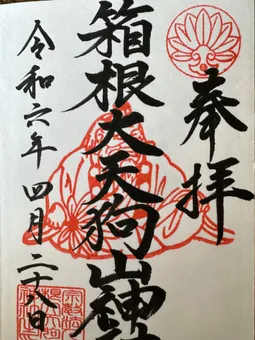 奉拝
箱根大天狗山神社
令和六年四月二十八日